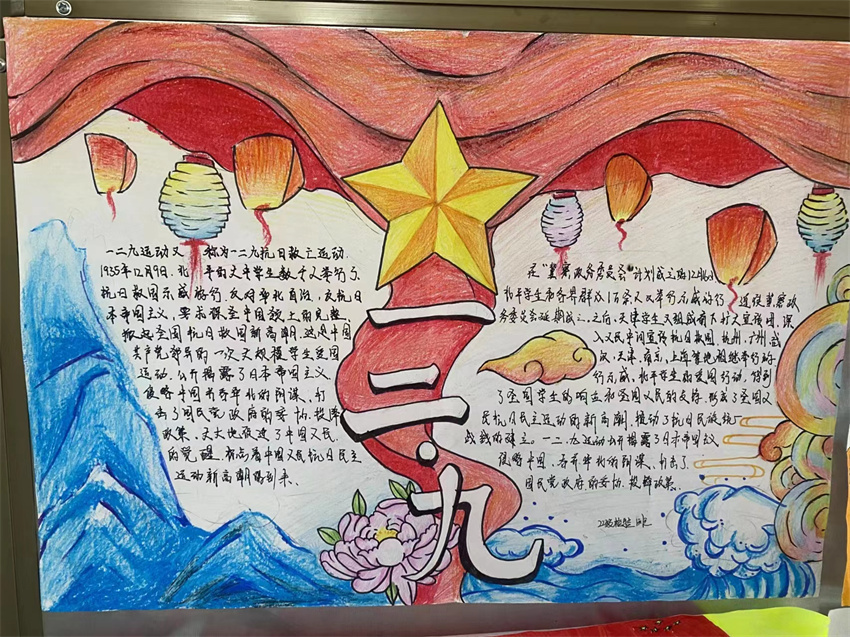 一二·九
一二九运动又 称为一二九抗日救亡运动.
1935年12月9日. 北平 大中学生数千人举行了
抗日救国示威游行, 反对华北自治, 反抗日
本帝国主义, 要求保全中国领土的完整,
掀起全国抗日救国新高潮. 这是中国
共产党领导的一次大规模学生爱国
运动, 公开揭露了日本帝国主义
侵略中国 吞并华北的阴谋, 打
击了国民党政府的妥协.投降
政策, 大大地促进了中国人民.
的觉醒. 标志着中国人民抗日民主
运动新高潮的到来、
在"冀察政务委员会"计划成立的12月16日
北平学生和各界群众1万余人又举行示威游行, 迫使冀察政
务委员会延期成立, 之后, 天津学生又组成南下扩大宣传团, 深
入人民中间宣传抗日救国, 杭州, 广州, 武
汉, 天津, 南京, 上海等地相继举行游
行示威, 北平学生的爱国行动, 得到
了全国学生的响应和全国人民的支持, 形成了全国人
民抗日民主运动的新高潮, 推动了抗日民族统一
战线的建立。一二·九运动公开揭露了日本帝国主义
侵略中国, 吞并华北的阴谋, 打击了.
国民党政府的妥协, 投降政策、